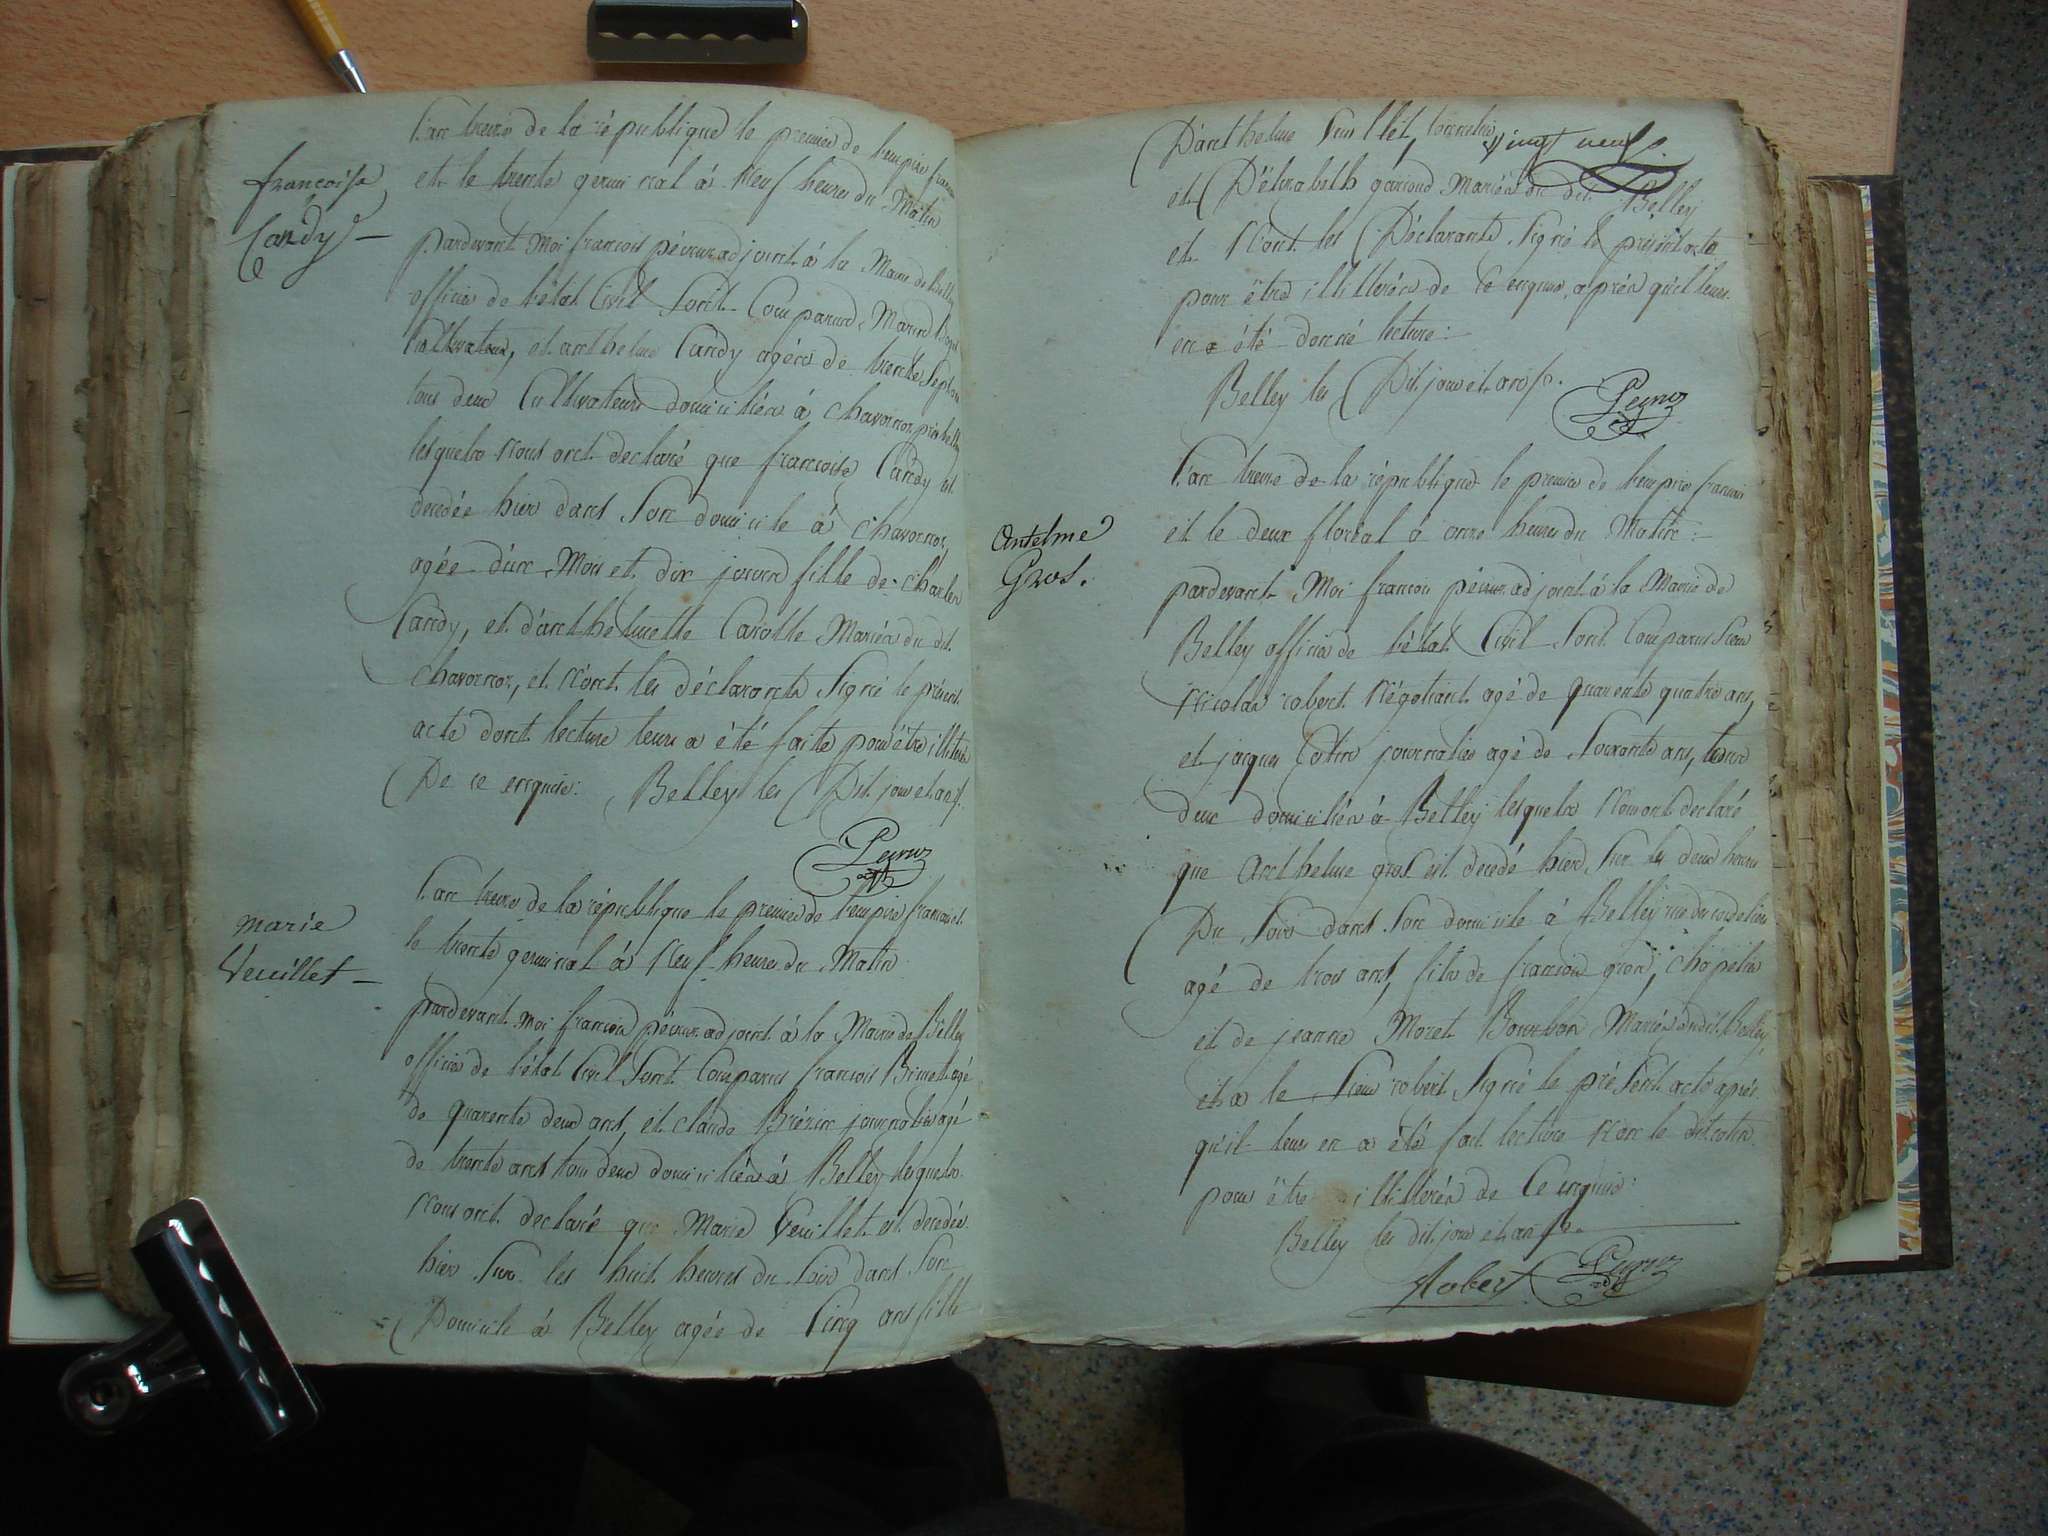 françoise
Candy
L'an treize de la république le premier de l'empire français
et le trente germinal à neuf heures du matin
pardevant moi françois péyruz adjoint à la Mairie de Belley
officier de l'état Civil Sont Comparus Marin
Cultivateur, et anthelme Candy agés de trente sept ans
tous deux Cultivateurs domiciliés à chavornor, près belley
lesquels nous ont declaré que françoise Candy est
decedée hier dans Son domicile à chavornor,
agée d'un Mois et dix jours fille de charles
Candy, et d'anthelmette Carotte Mariés du dit
chavornor, et n'ont les déclarants Signé le présent
acte dont lecture leurs a été faite pour être illiterés
De ce enquis: Belley les Dit jour et an
Peyruz
adjt
marie
Veuillet
L'an treize de la république le premier de l'empire francais et
le trente germinal à neuf heures du Matin
pardevant moi françois péyruz adjoint à la Mairie de Belley
officier de l'état Civil Sont Comparus françois Brunet agé
de quarente deux ans, et claude journalier agé
de trente ans tous deux domiciliés à Belley lesquels
nous ont declaré que Marie Veuillet est decedée
hier Sur les huit heures du Soir dans Son
Domicile à Belley agée de Cinq ans fille
vingt neuf
D'anthelme Veuillet, tonnelier
et D'élizabeth garioud Mariés du dit Belley
et n'ont les Déclarants Signé le présent acte
pour être illitterés de Ce enquis, après qu'il leurs
en a été donné lecture:
Belley les Dit jour et an
Peyruz
adjt
Antelme
Gros.
L'an treize de la république le premier de l'empire francais
et le deux floréal à onze heures du Matin:
pardevant Moi françois péyruz adjoint à la Mairie de
Belley officier de l'état Civil Sont Comparus Sieur
Nicolas robert Négotiant agé de quarente quatre ans,
et jacques Cotin journalier agé de Soixante ans, tous
deux domiciliés à Belley lesquels Nous ont declaré
que Anthelme gros est decedé hier Sur les deux heures
Du Soir dans Son domicile à Belley rue des cordeliers
agé de trois ans, fils de françois gros, chapelier
et de jeanne Moret Bourbon Mariés du dit Belley,
et a le Sieur robert Signé le préSent acte après
qu'il leurs en a été fait lecture non le dit cotin
pour être illitterés de Ce enquis:
Belley les dit jour et an
Robert Peyruz
adjt